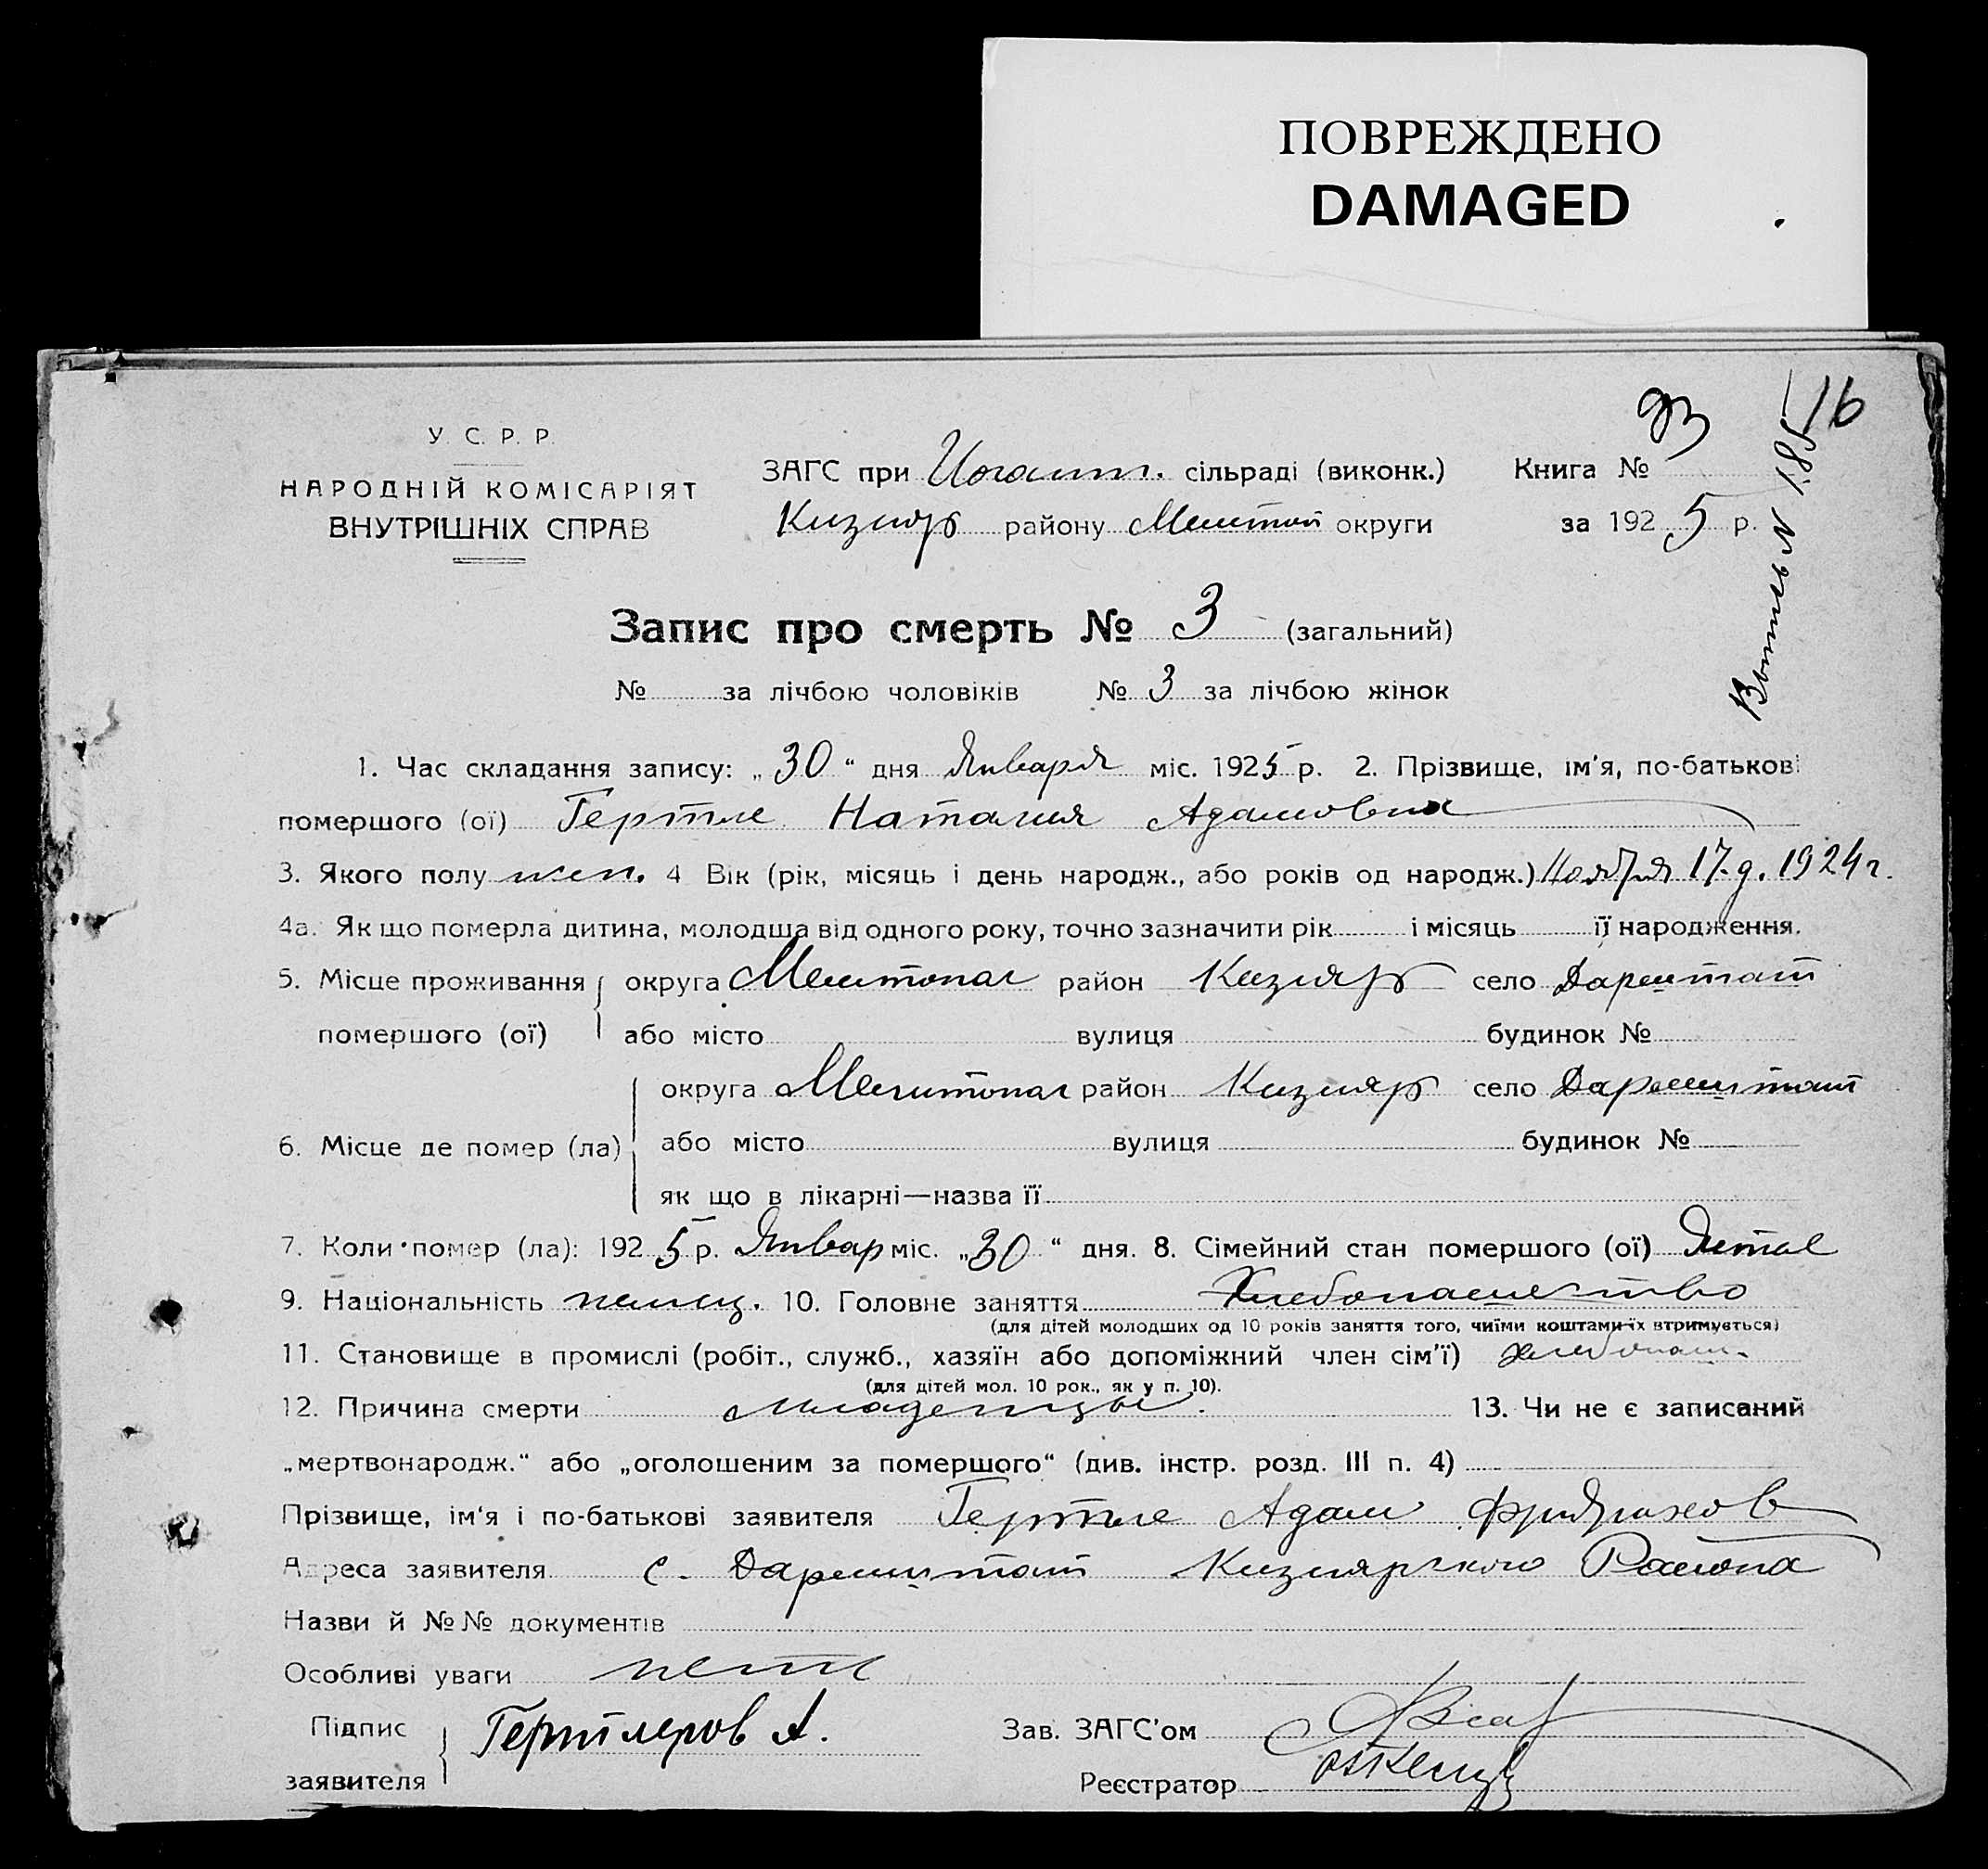 ПОВРЕЖДЕНО
DAMAGED
16
93
У. С. Р. Р.
НАРОДНІЙ КОМІСАРІЯТ
ВНУТРІШНІХ СПРАВ
ЗАГС при сільраді (виконк.)
Кизияр району Мелитоп округи
Книга №
за 1925 р.
Выпись № 185
Запис про смерть № 3 (загальний)
№ за лічбою чоловіків № 3 за лічбою жінок
1. Час складання запису: „30“ дня Января міс. 1925 р. 2. Прізвище, ім'я, по-батькові
помершого (ої) Гертле Наталия Адамовна
3. Якого полу жен. 4 Вік (рік, місяць і день народж., або років од народж.) Ноября 17 д. 1924 г.
4а. Як що померла дитина, молодша від одного року, точно зазначити рік і місяць її народження.
5. Місце проживання округа Мелитопол район Кизияр село Дармштат
помершого (ої) або місто вулиця будинок №
округа Мелитопол район Кизияр село Дармштат
6. Місце де помер (ла) або місто вулиця будинок №
як що в лікарні—назва її
7. Коли помер (ла): 1925 р. Январ міс. „30“ дня. 8. Сімейний стан помершого (ої) Дитя
9. Національність немец. 10. Головне заняття Хлебопашество
(для дітей молодших од 10 років заняття того, чиїми коштами їх втримується)
11. Становище в промислі (робіт., служб., хазяїн або допоміжний член сім'ї) хлебопаш.
(для дітей мол. 10 рок., як у п. 10).
12. Причина смерти младенцы. 13. Чи не є записаний
„мертвонародж.“ або „оголошеним за помершого“ (див. інстр. розд. III п. 4)
Прізвище, ім'я і по-батькові заявителя Гертле Адам Фридрихов
Адреса заявителя с. Дармштат Кизиярского Района
Назви й №№ документів
Особливі уваги нети
Підпис
заявителя Гертлеров А.
Зав. ЗАГС'ом
Реєстратор